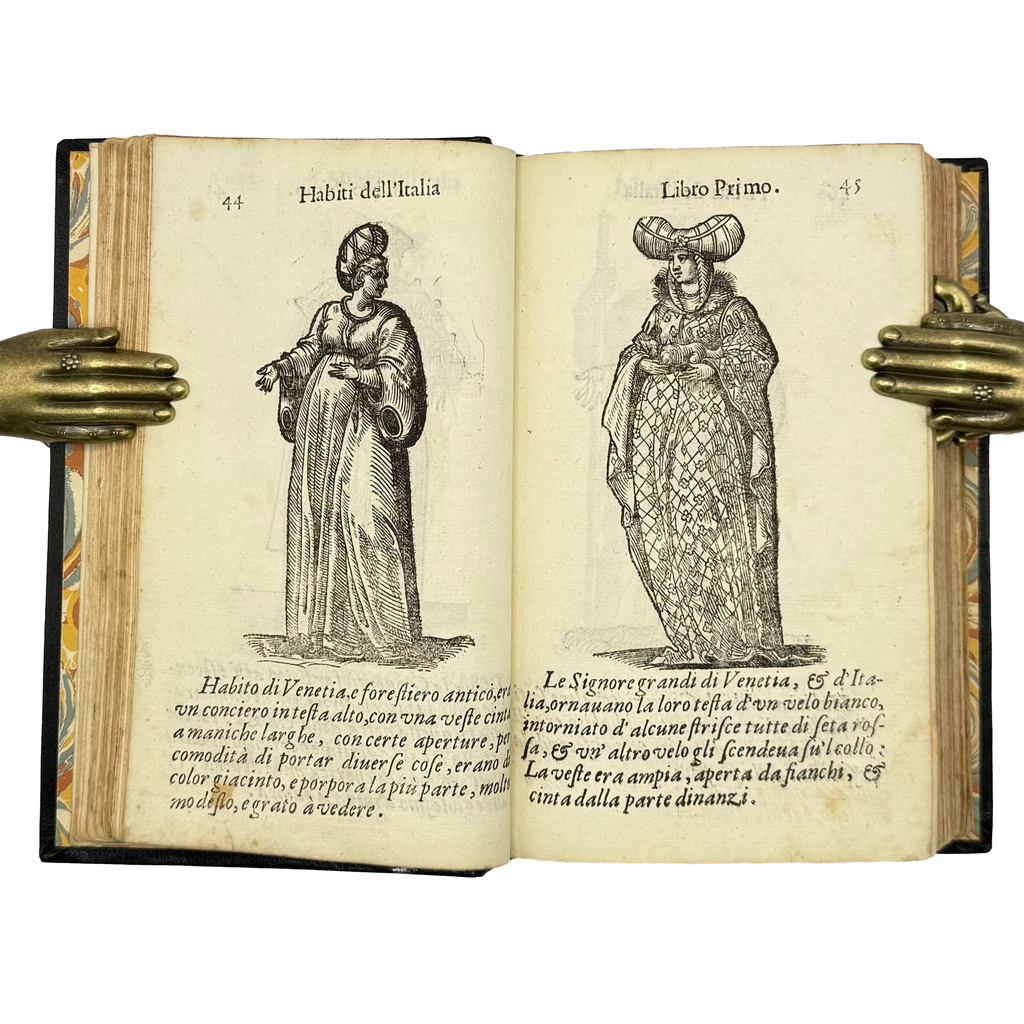 44 Habiti dell'Italia
Habito di Venetia, e forestiero antico, era
vn conciero in testa alto, con vna veste cinta
a maniche larghe, con certe aperture, per
comodità di portar diuerse cose, erano di
color giacinto, e porpora la più parte, molto
modesto, e grato à vedere.
Libro Primo. 45
Le Signore grandi di Venetia, & d'Ita-
lia, ornauano la loro testa d'vn velo bianco,
intorniato d'alcune strisce tutte di seta ros-
sa, & vn' altro velo gli scendeua sù'l collo:
La veste era ampia, aperta da fianchi, &
cinta dalla parte dinanzi.